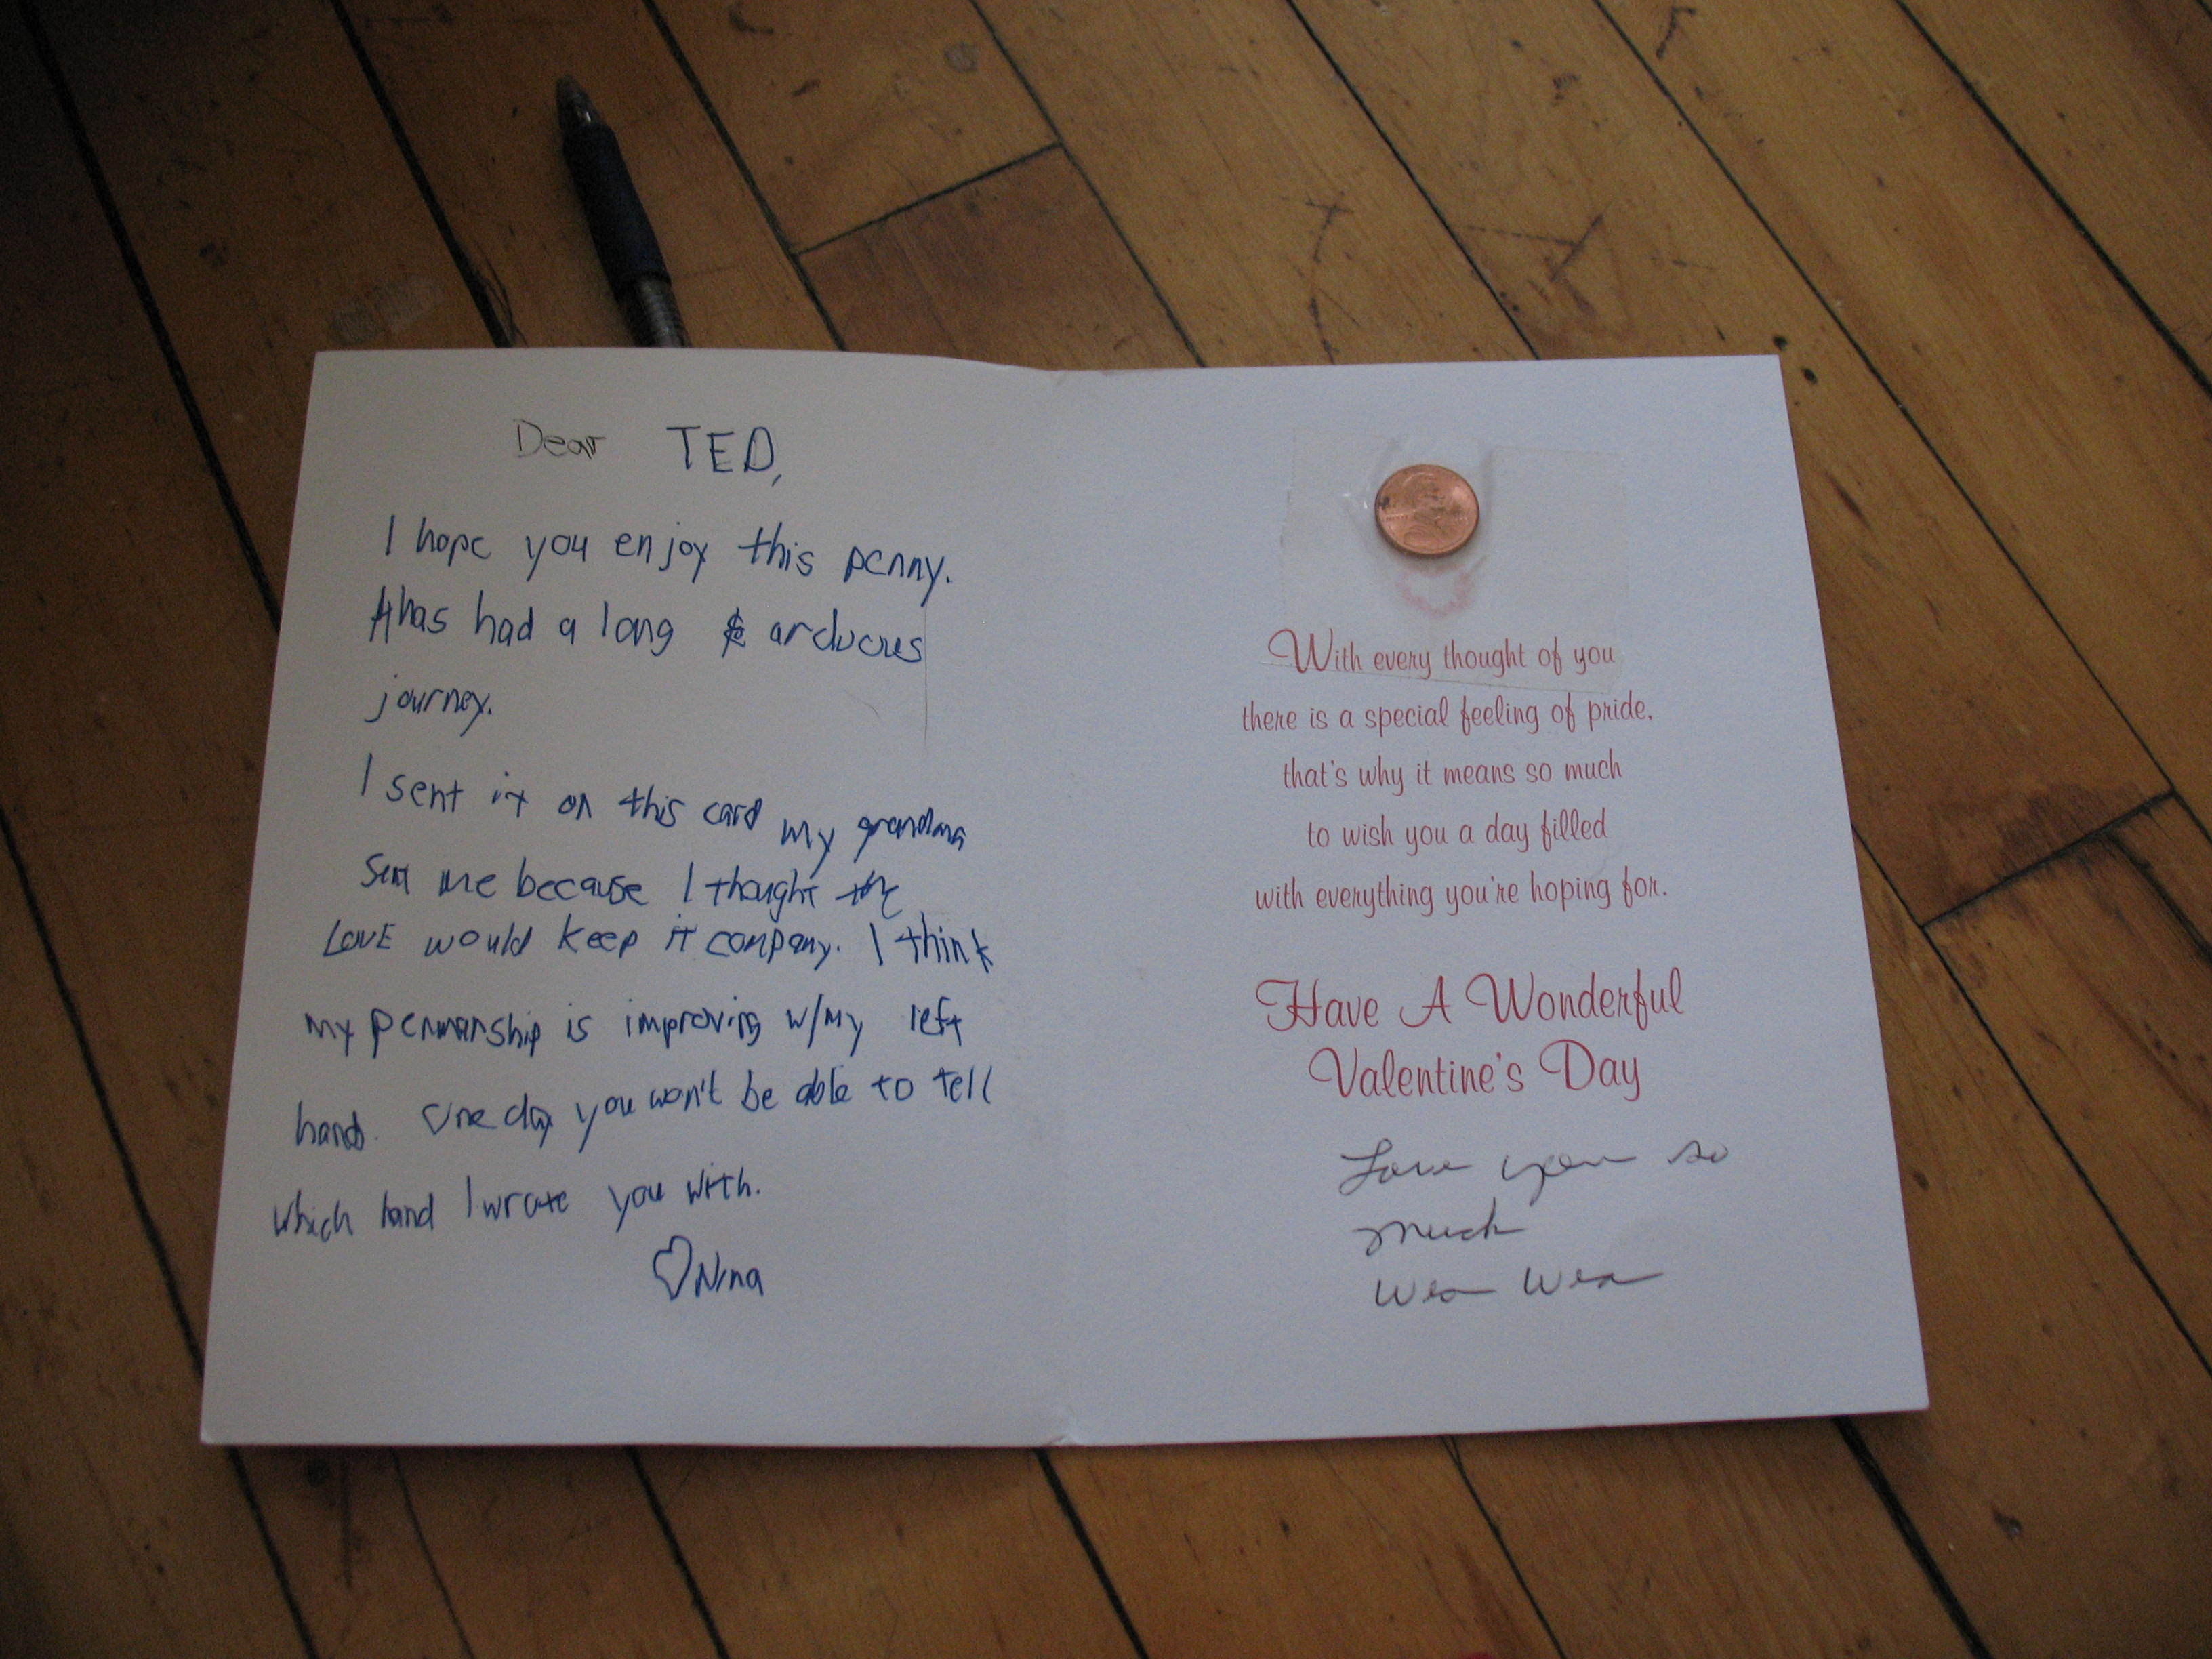 Dear TED,
I hope you enjoy this penny.
It has had a long & arduous
journey.
I sent it on this card my grandma
sent me because I thought the
LOVE would keep it company. I think
my penmanship is improving w/my left
hand. One day you won't be able to tell
which hand I wrote you with.
♡Nina
With every thought of you
there is a special feeling of pride,
that's why it means so much
to wish you a day filled
with everything you're hoping for.
Have A Wonderful
Valentine's Day
Love you so
much